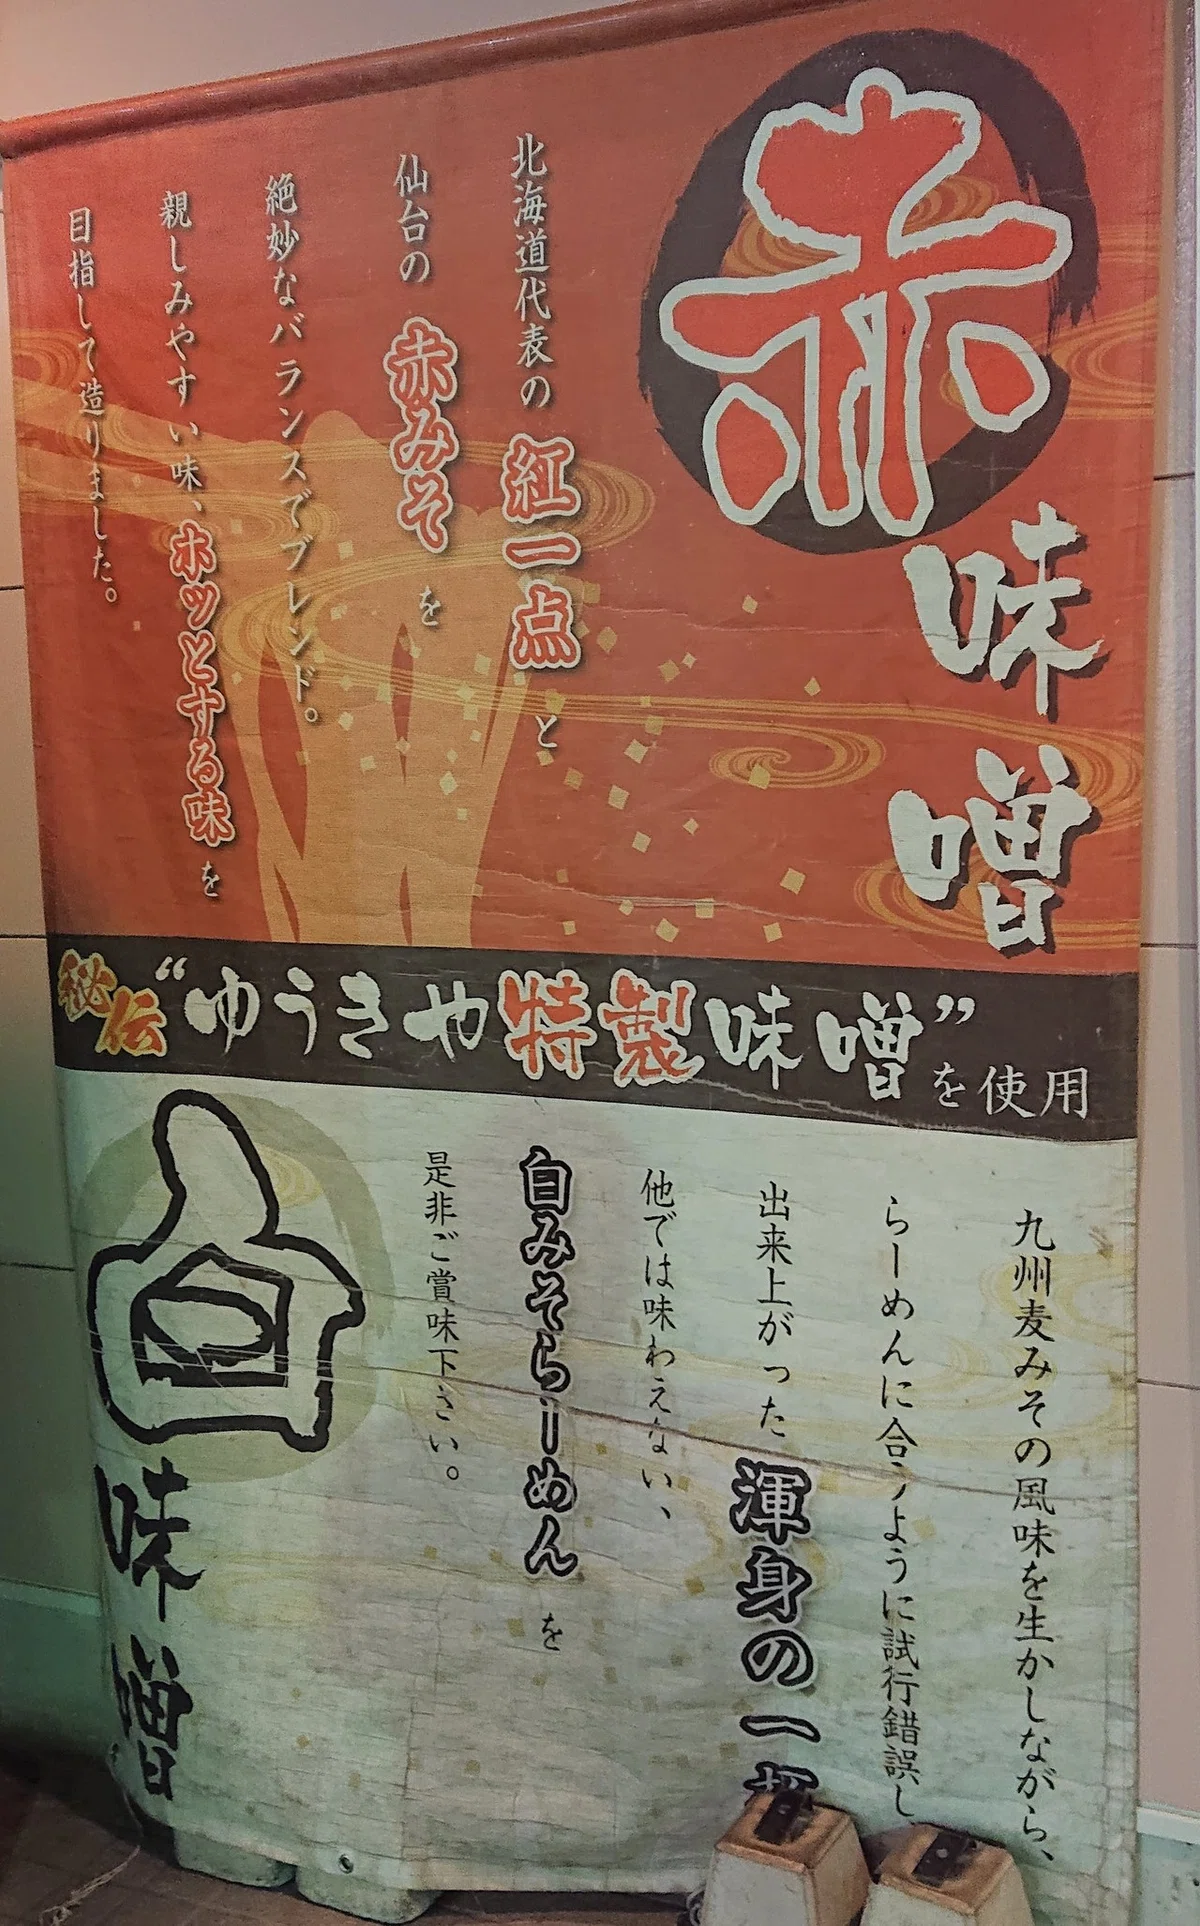 赤味噌
北海道代表の 紅一点 と
仙台の 赤みそ を
絶妙なバランスでブレンド。
親しみやすい味、ホッとする味 を
目指して造りました。
秘伝“ゆうきや特製味噌”を使用
九州麦みその風味を生かしながら、
らーめんに合うように試行錯誤し
出来上がった 渾身の一
他では味わえない、
白みそらーめん を
是非ご賞味下さい。
白味噌